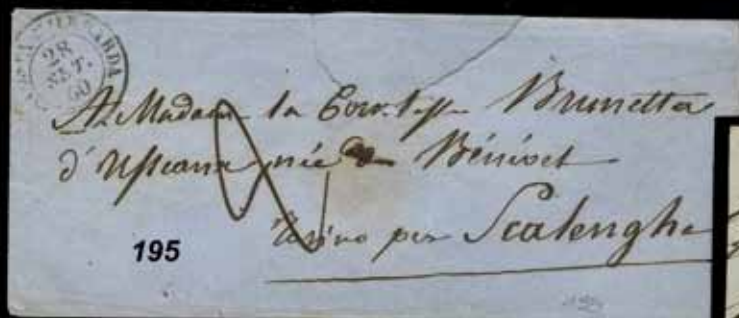 28
SET.
60
A Madame la Comtesse Brunetta
d'Usseaux née de Bénivet
Torino per Scalenghe
195